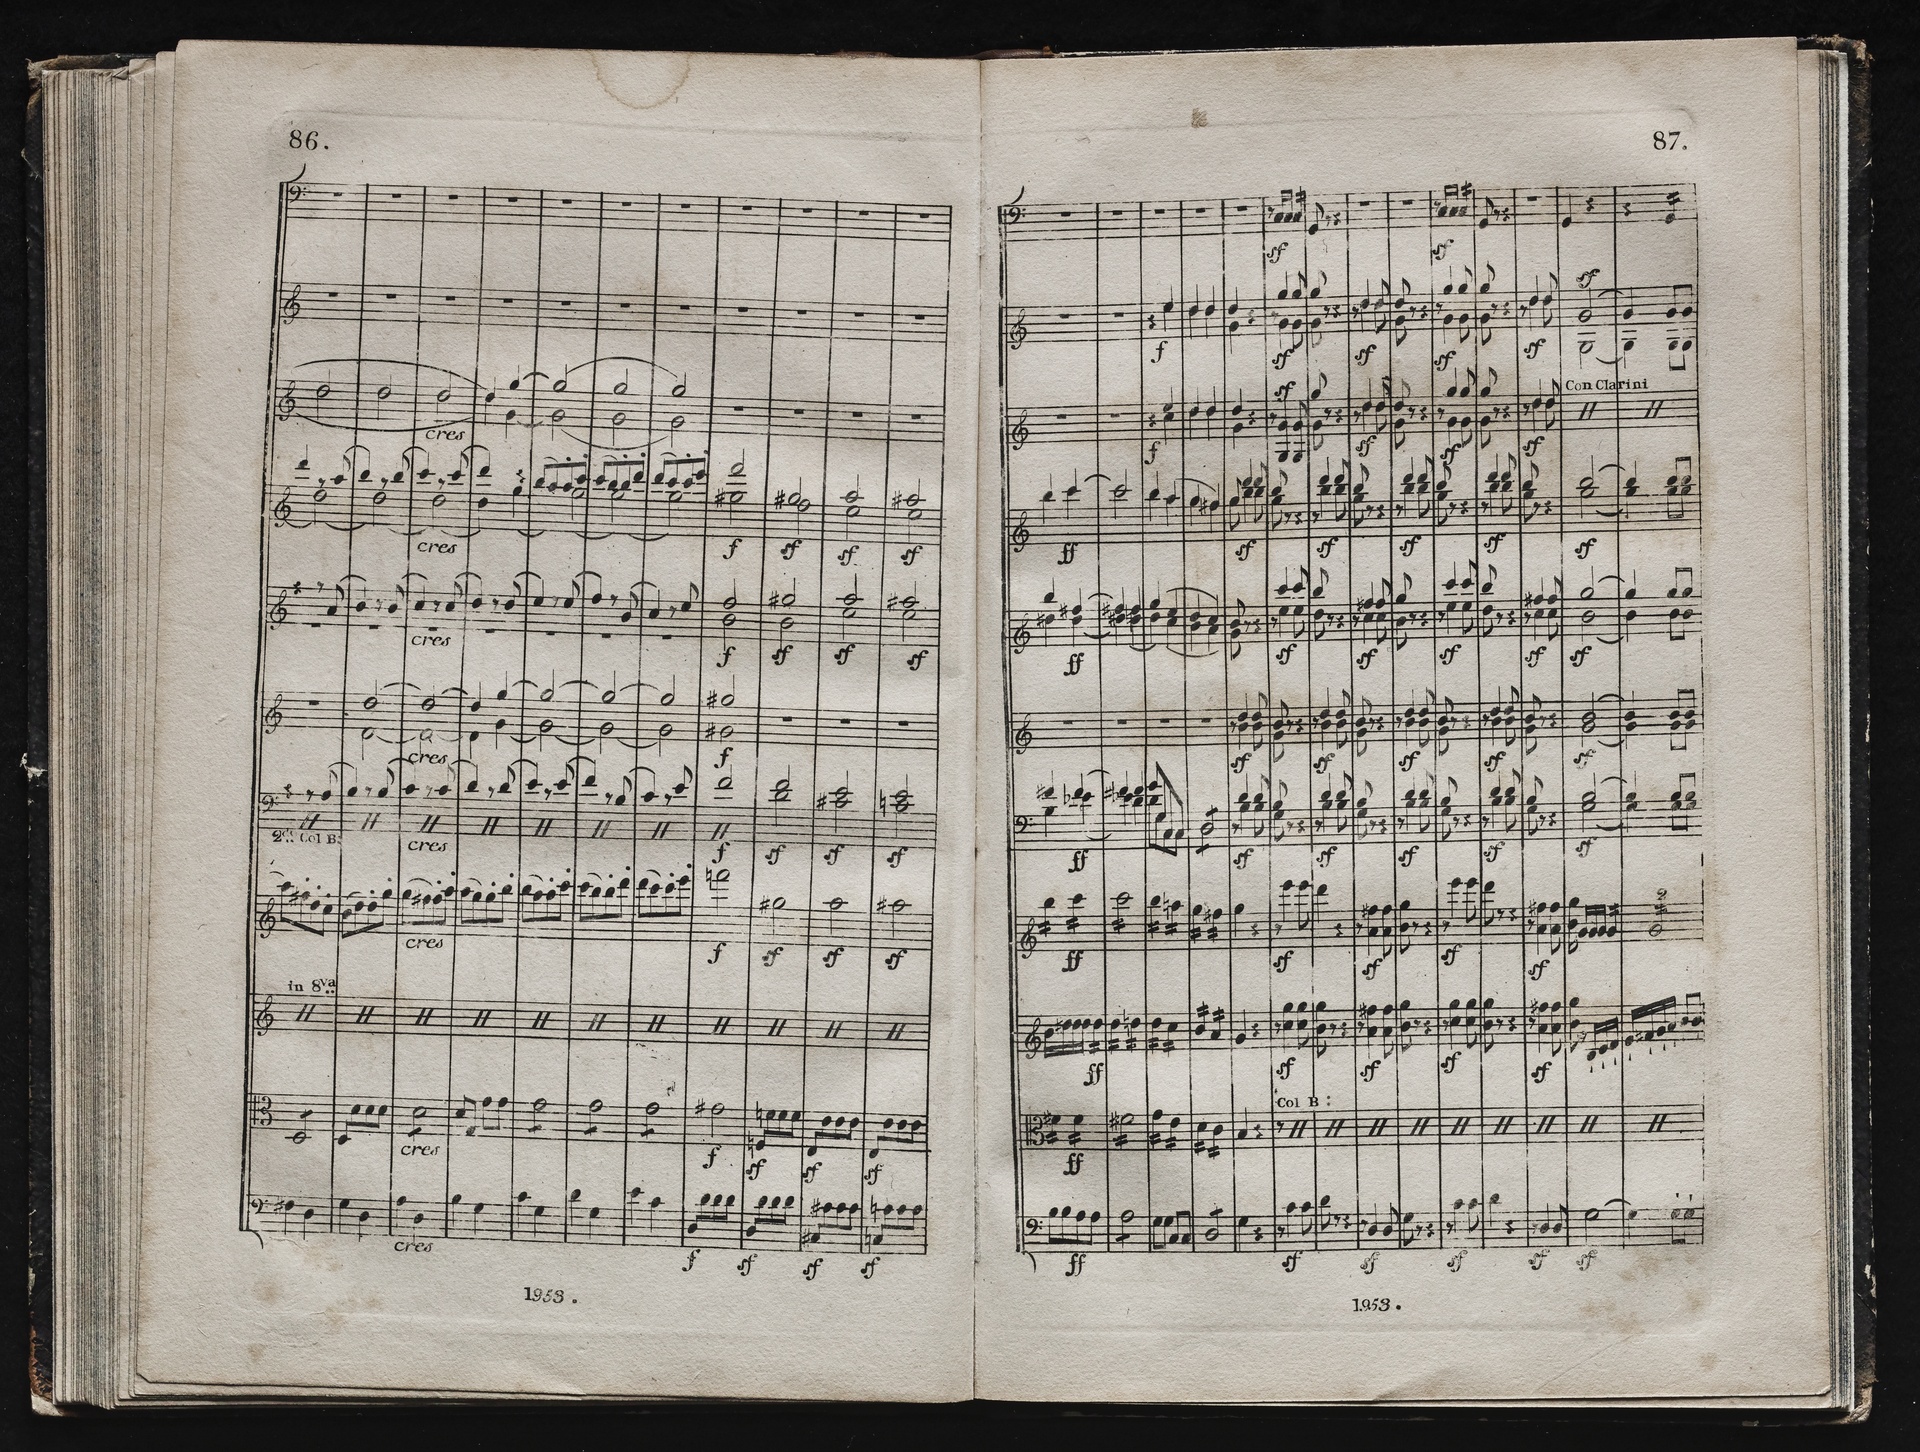 86.
cres
cres
f sf sf sf
cres
f sf sf sf
cres
f
2º: Col B:
cres
f sf sf sf
cres
f sf sf sf
in 8va
cres
f sf sf sf
cres
f sf sf sf
1953.
87.
sf sf
sf
f sf sf sf sf
Con Clarini
sf
f sf sf sf
ff sf sf sf sf sf
ff sf sf sf sf sf
sf sf sf sf sf
ff sf sf sf sf sf
2
ff sf sf sf sf
ff sf sf sf sf
Col B:
ff
ff sf sf sf sf sf
1953.